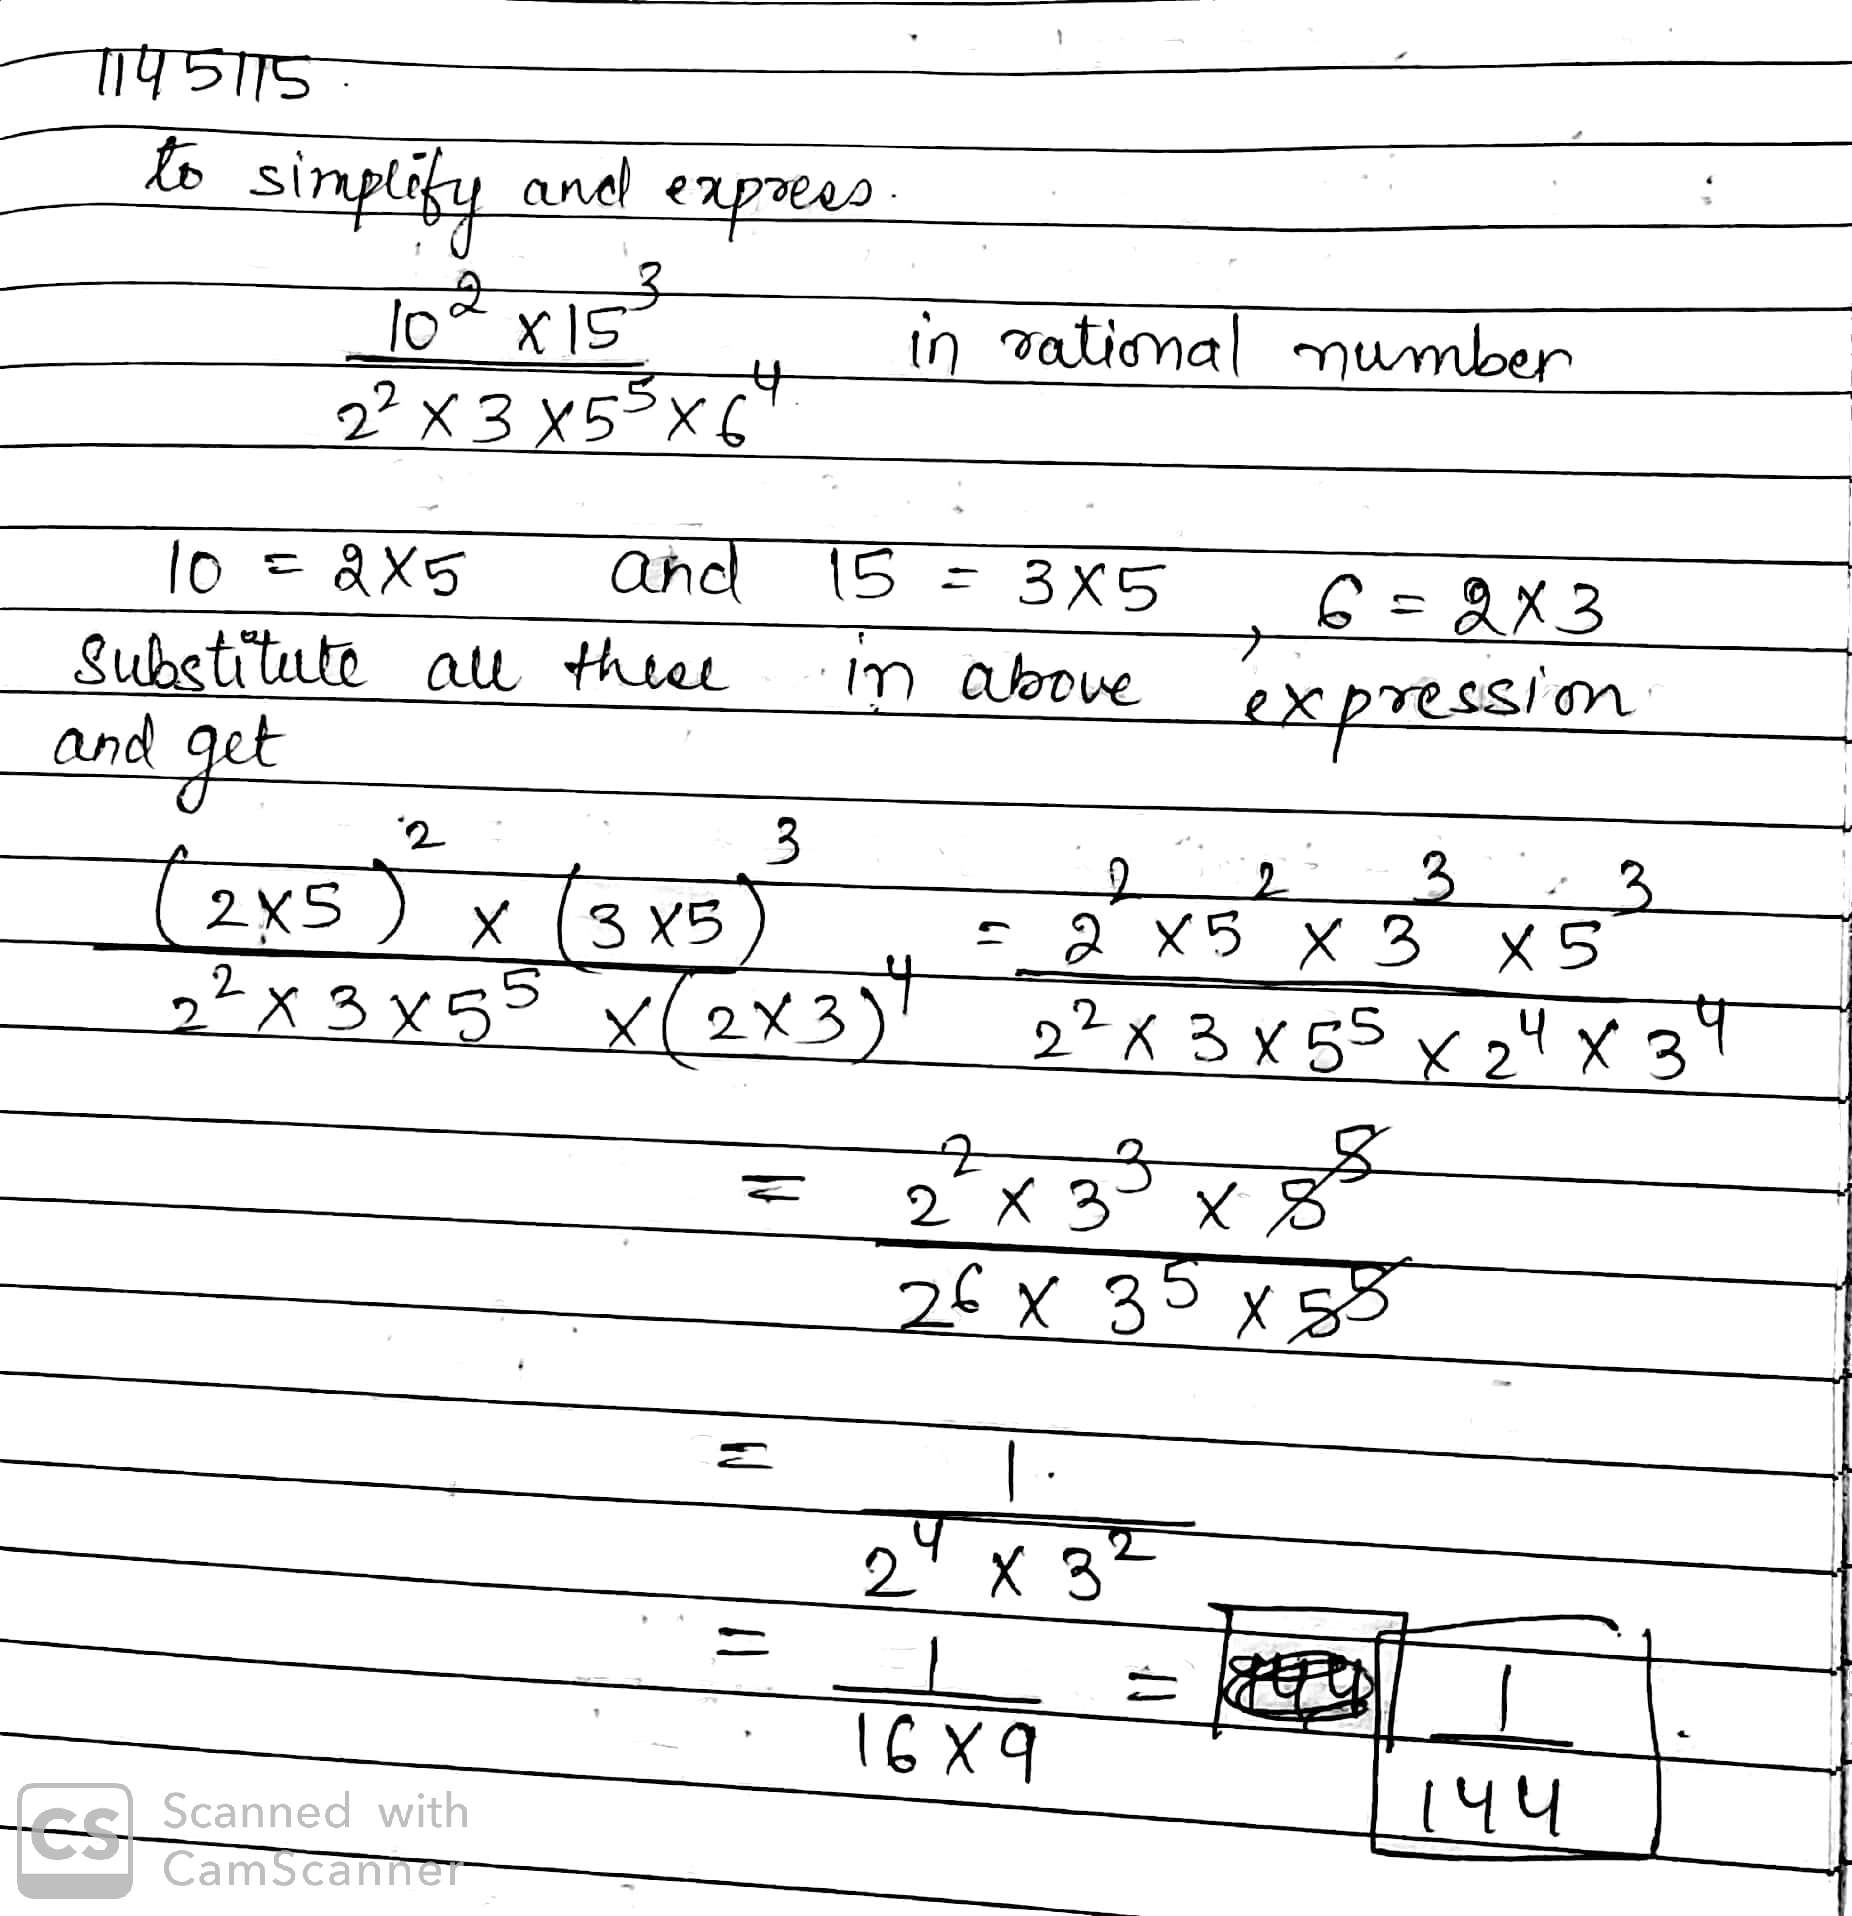 1145115.
to simplify and express.
10² × 15³
2² × 3 × 5⁵ × 6⁴ in rational number
10 = 2×5 and 15 = 3×5 , 6 = 2×3
Substitute all these in above expression
and get
(2×5)² × (3×5)³ = 2² × 5² × 3³ × 5³
2² × 3 × 5⁵ × (2×3)⁴ 2² × 3 × 5⁵ × 2⁴ × 3⁴
= 2² × 3³ × 5⁵
2⁶ × 3⁵ × 5⁵
= 1.
2⁴ × 3²
= 1 = 1.
16×9 144
CS Scanned with
CamScanner